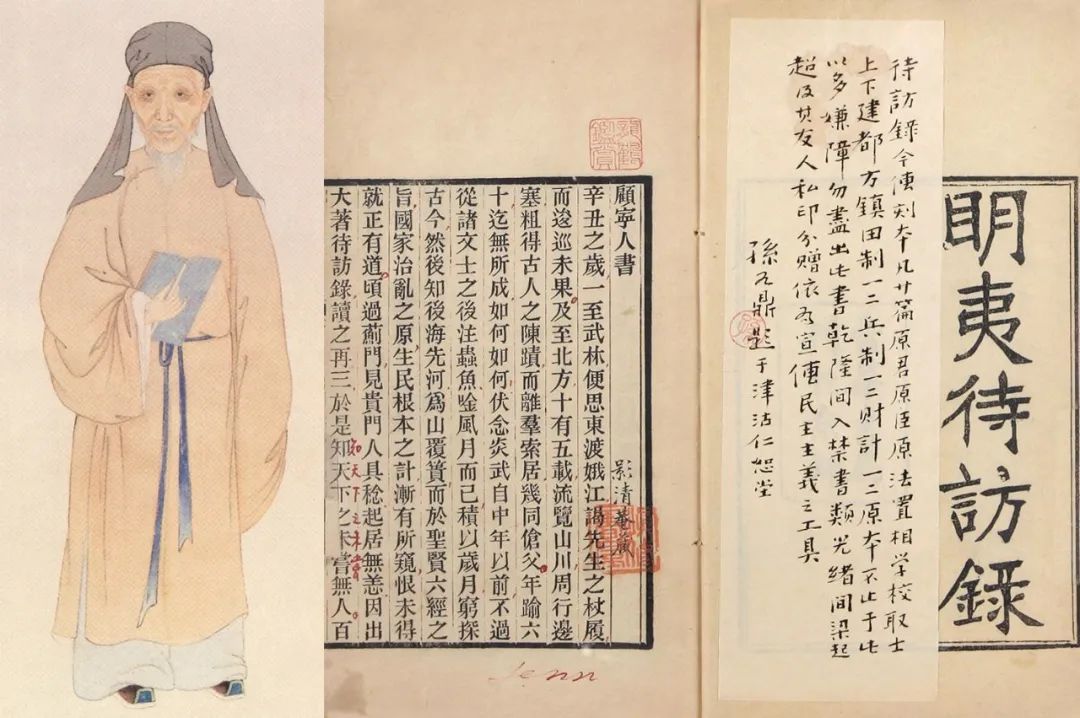 明夷待訪錄
待訪錄今傳刻本凡廿篇原君原臣原法置相学校取士
上下建都方鎮田制一二兵制一二财计一二原本不止于此
以多嫌障勿盡出此書乾隆間入禁書類光緒間梁起
超及其友人私印分赠作为宣傳民主主義之工具
孫鼎题于津沽仁恕堂
顧寧人書
清菴藏
辛丑之歲一至武林便思東渡娥江謁先生之杖履
而逡巡未果及至北方十有五載流覽山川周行邊
塞粗得古人之陳蹟而離羣索居幾同傖父年踰六
十迄無所成如何如何伏念炎武自中年以前不過
從諸文士之後注蟲魚唫風月而已積以歲月窮探
古今然後知後海先河為山覆簣而於聖賢六經之
旨國家治亂之原生民根本之計漸有所窺恨未得
就正有道頃過薊門見貴門人具稔起居無恙因出
大著待訪錄讀之再三於是知天下之未嘗無人百
知天下之未嘗